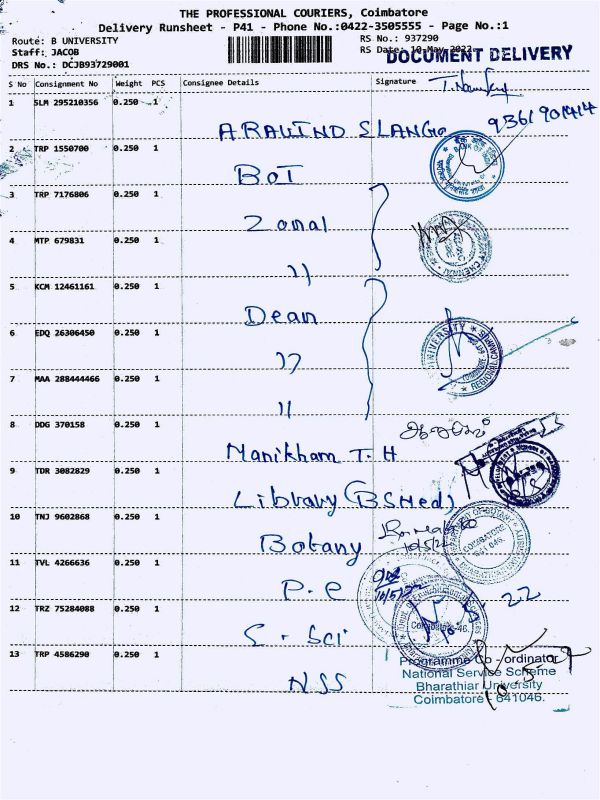 THE PROFESSIONAL COURIERS, Coimbatore
Delivery Runsheet - P41 - Phone No.:0422-3505555 - Page No.:1
Route: B UNIVERSITY
Staff: JACOB
DRS No.: DCJB93729001
RS No.: 937290
RS Date: 10-May-2022
DOCUMENT DELIVERY
S No Consignment No Weight PCS Consignee Details Signature
9361901414
1 SLM 295210356 0.250 1 ARAVIND SLANGO
2 TRP 1550700 0.250 1 BOI
3 TRP 7176806 0.250 1 Zonal
4 MTP 679831 0.250 1 "
5 KCM 12461161 0.250 1 Dean
6 EDQ 26306450 0.250 1 "
7 MAA 288444466 0.250 1 "
8 DDG 370158 0.250 1 Manikham T. H
9 TDR 3082829 0.250 1 Library (BSMed)
10 TNJ 9602868 0.250 1 Botany
10/5/22
11 TVL 4266636 0.250 1 P. e
10/5/22
12 TRZ 75284088 0.250 1 S. Sci
Coimbatore-46.
13 TRP 4586290 0.250 1 NSS
Programme Co-ordinator
National Service Scheme
Bharathiar University
Coimbatore - 641046.